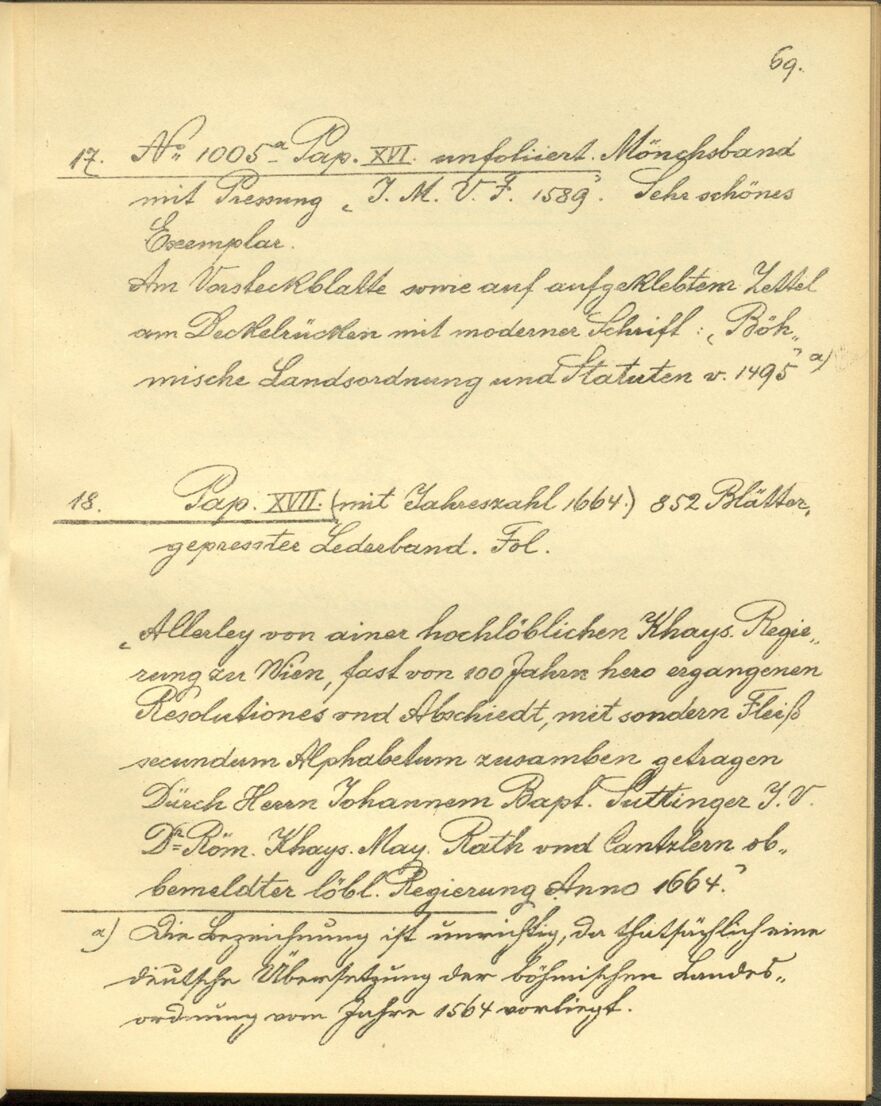 69.
17. No 1005a Pap. XVI. unfoliiert. Mönchsband
mit Pressung „J. M. V. F. 1589“. Sehr schönes
Exemplar.
Am Vorsteckblatte sowie auf aufgeklebtem Zettel
am Deckelrücken mit moderner Schrift: „Böh-
mische Landsordnung und Statuten v. 1495“ a)
18. Pap. XVII. (mit Jahreszahl 1664.) 852 Blätter,
gepresster Lederband. Fol.
„Allerley von ainer hochlöblichen Khays. Regie-
rung zu Wien, fast von 100 Jahrn hero ergangenen
Resolutiones vnd Abschiedt, mit sondern Fleiß
secundum Alphabetum zusamben getragen
Dürch Herrn Johannem Bapt. Suttinger J. V.
Dr= Röm. Khays. May. Rath vnd Cantzlern ob-
bemeldter löbl. Regierung Anno 1664.“
a) Die Bezeichnung ist unrichtig, da thatsächlich eine
deutsche Übersetzung der böhmischen Landes-
ordnung vom Jahre 1564 vorliegt.